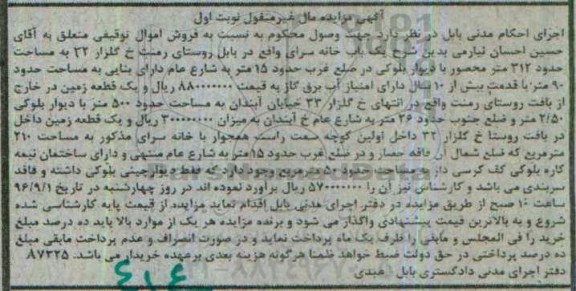 آگهی مزایده مال غیرمنقول نوبت اول
اجرای احکام مدنی بابل در نظر دارد جهت وصول محکوم به نسبت به فروش اموال توقیفی متعلق به آقای
حسین احسان نیارمی بدین شرح یک باب خانه سرای واقع در بابل روستای رمنت خ گلزار ۳۲ به مساحت
حدود ۳۱۲ متر محصور با دیوار بلوکی در ضلع غرب حدود ۱۵ متر به شارع عام دارای بنایی به مساحت حدود
۹۰ متر با قدمت بیش از ۱۰ سال دارای امتیاز آب برق گاز به قیمت ۸۸۰۰۰۰۰۰۰ ریال و یک قطعه زمین در خارج
از بافت روستای رمنت واقع در انتهای خ گلزار ۳۳ خیابان آبندان به مساحت حدود ۵۰۰ متر با دیوار بلوکی
۲/۵۰ متر و ضلع جنوب حدود ۲۶ متر به شارع عام خ آبندان به میزان ۳۰۰۰۰۰۰۰۰ ریال و یک قطعه زمین داخل
در بافت روستا خ گلزار ۳۲ داخل اولین کوچه سمت راست همجوار با خانه سرای مذکور به مساحت ۲۱۰
مترمربع که ضلع شمال آن فاقد حصار و در ضلع غرب حدود ۱۵ متر به شارع عام منتهی و دارای ساختمان نیمه
کاره بلوکی کف کرسی دار به مساحت حدود ۵۰ مترمربع وجود دارد که فقط دیوارچینی بلوکی داشته و فاقد
سربندی می باشد و کارشناس نیز آن را ۵۷۰۰۰۰۰۰۰ ریال برآورد نموده اند در روز چهارشنبه در تاریخ ۹۶/۹/۱
ساعت ۱۰ صبح از طریق مزایده در دفتر اجرای مدنی بابل اقدام نماید مزایده از قیمت پایه کارشناسی شده
شروع و به بالاترین قیمت پیشنهادی واگذار می شود و برنده مزایده هر یک از موارد بالا باید ده درصد مبلغ
خرید را فی المجلس و مابقی را ظرف یک ماه پرداخت نماید و در صورت انصراف و عدم پرداخت مابقی مبلغ
ده درصد پرداختی در حق دولت ضبط خواهد ضمنا هرگونه هزینه بعدی برعهده خریدار می باشد. ۸۷۳۲۵
دفتر اجرای مدنی دادگستری بابل - عبدی